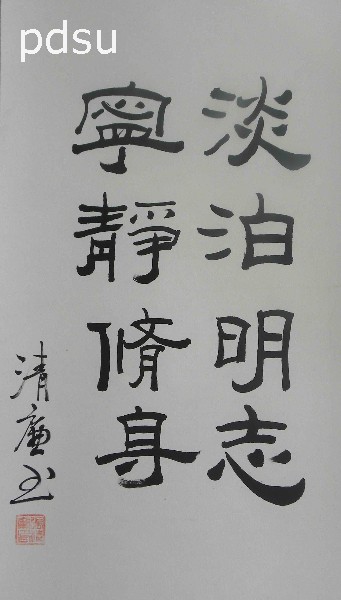 pdsu
淡泊明志
寧靜脩身
清廉书